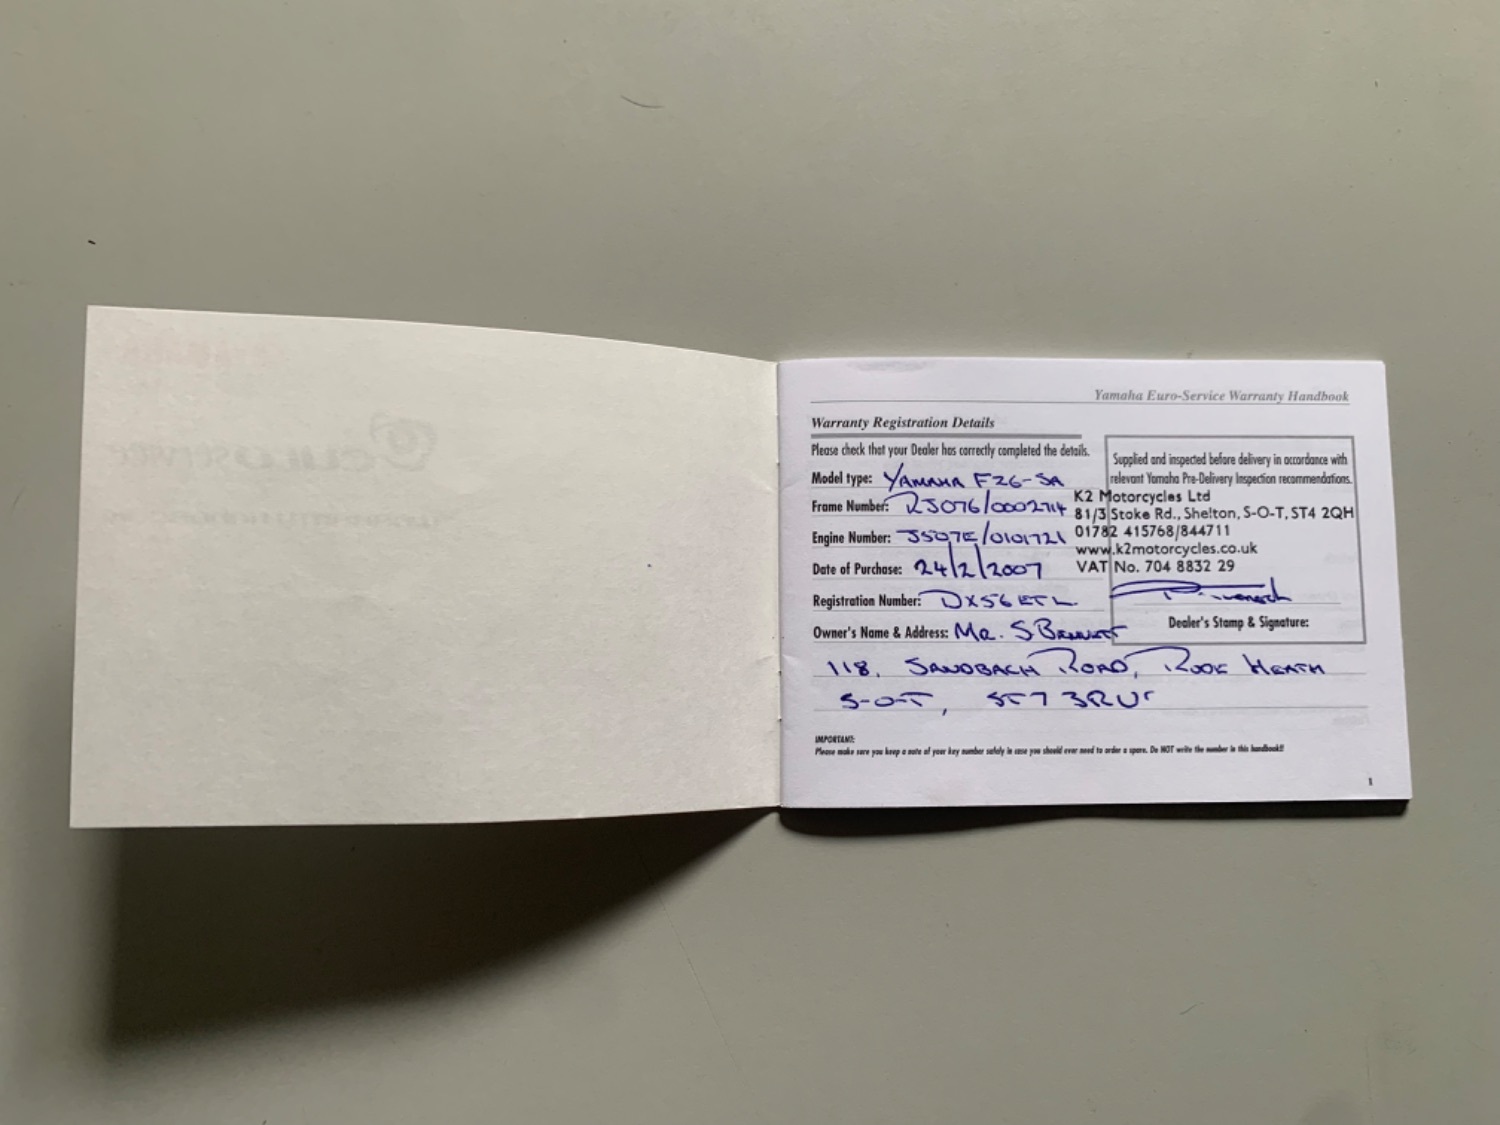 Yamaha Euro-Service Warranty Handbook
Warranty Registration Details
Please check that your Dealer has correctly completed the details.
Model type: YAMAHA FZ6-SA
Frame Number: RJ076/0002714
Engine Number: J507E/0101721
Date of Purchase: 24/2/2007
Registration Number: DX56 ETL
Owner's Name & Address: MR. S BENNETT
118, SANDBACH ROAD, RODE HEATH
S-O-T, ST7 3RU
Supplied and inspected before delivery in accordance with
relevant Yamaha Pre-Delivery Inspection recommendations.
K2 Motorcycles Ltd
81/3 Stoke Rd., Shelton, S-O-T, ST4 2QH
01782 415768/844711
www.k2motorcycles.co.uk
VAT No. 704 8832 29
Dealer's Stamp & Signature:
IMPORTANT:
Please make sure you keep a note of your key number safely in case you should ever need to order a spare. Do NOT write the number in this handbook!!
1